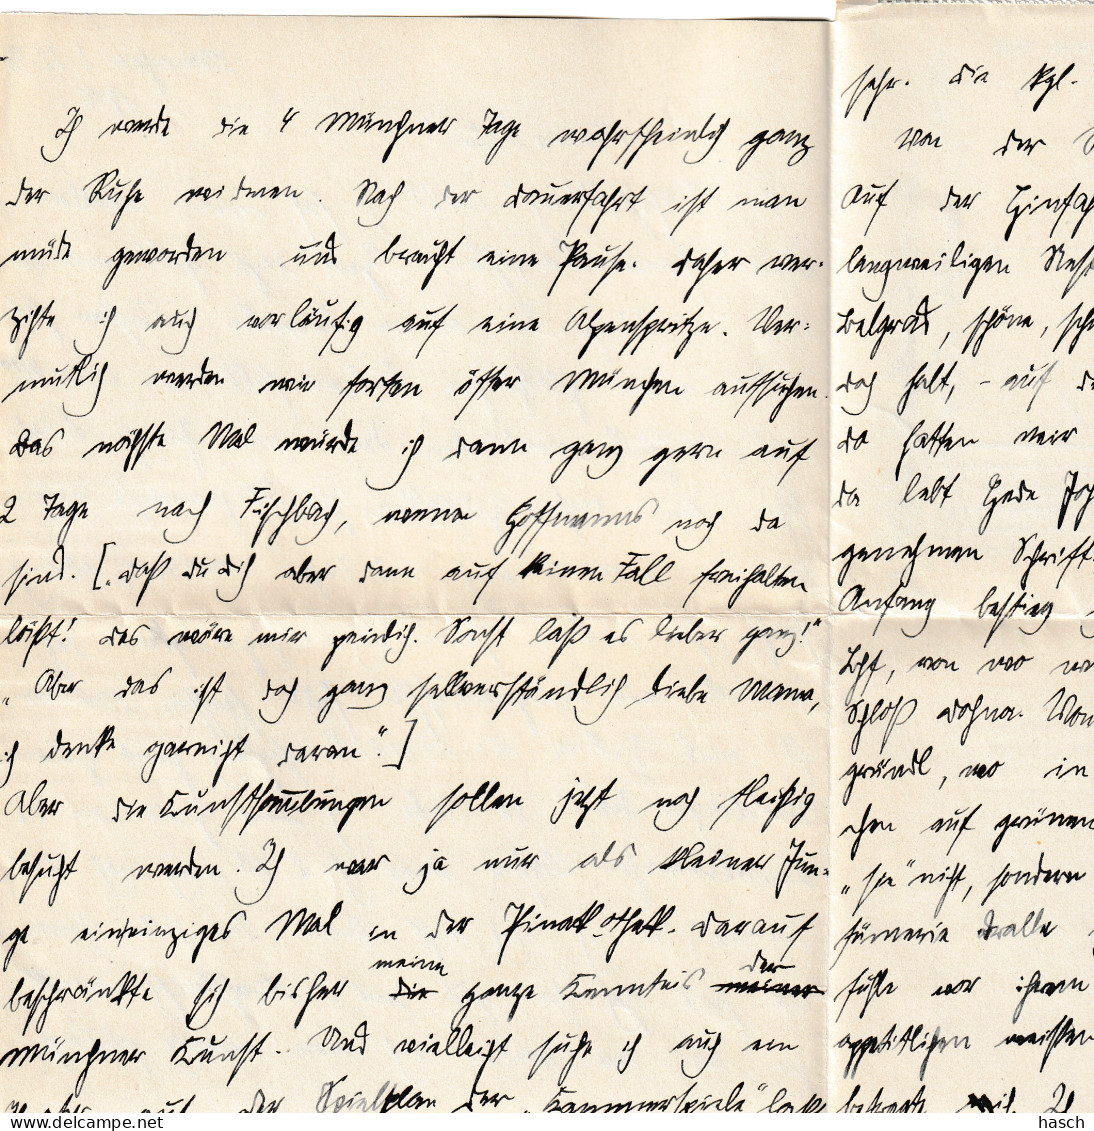 Ich werde die 4 Münchner Tage wahrscheinlich ganz
der Ruhe widmen. Nach der Dauerfahrt ist man
müde geworden und braucht eine Pause. Daher ver-
zichte ich auch vorläufig auf eine Alpenspritze. Ver-
mutlich werden wir fortan öfter München aufsuchen.
Das nächste Mal würde ich dann ganz gern auf
2 Tage nach Fischbach, wenn Hoffmanns noch da
sind. [„Daß du dich aber dann auf keinen Fall freihalten
läßt! Das wäre mir peinlich. Sonst laß es lieber ganz!"
„Aber das ist doch ganz selbverständlich liebe Mama,
ich denke garnicht daran".]
Aber die Kunstsammlungen sollen jetzt noch fleißig
besucht werden. Ich war ja nur als kleiner Jun-
ge ein einziges Mal in der Pinakothek. Darauf
beschränkte sich bisher meine ganze Kenntnis der
Münchner Kunst. Und vielleicht suche ich auch ein
auf der Spielplan der „Kammerspiele"
sehr. Die kgl.
Von der
Auf der Hinfah
langweiligen Nest
Belgrad, schöne,
doch halt, - auf
da hatten wir
da lebt
genehmen Schrift
Anfang bestieg
von wo
Schloß Dohna. Von
gründl, wo in
chen auf grünen
„sie" nicht, sondern
fümerie Dralle
füße vor ihrem
appetitlichen weissen
Ich
hasch